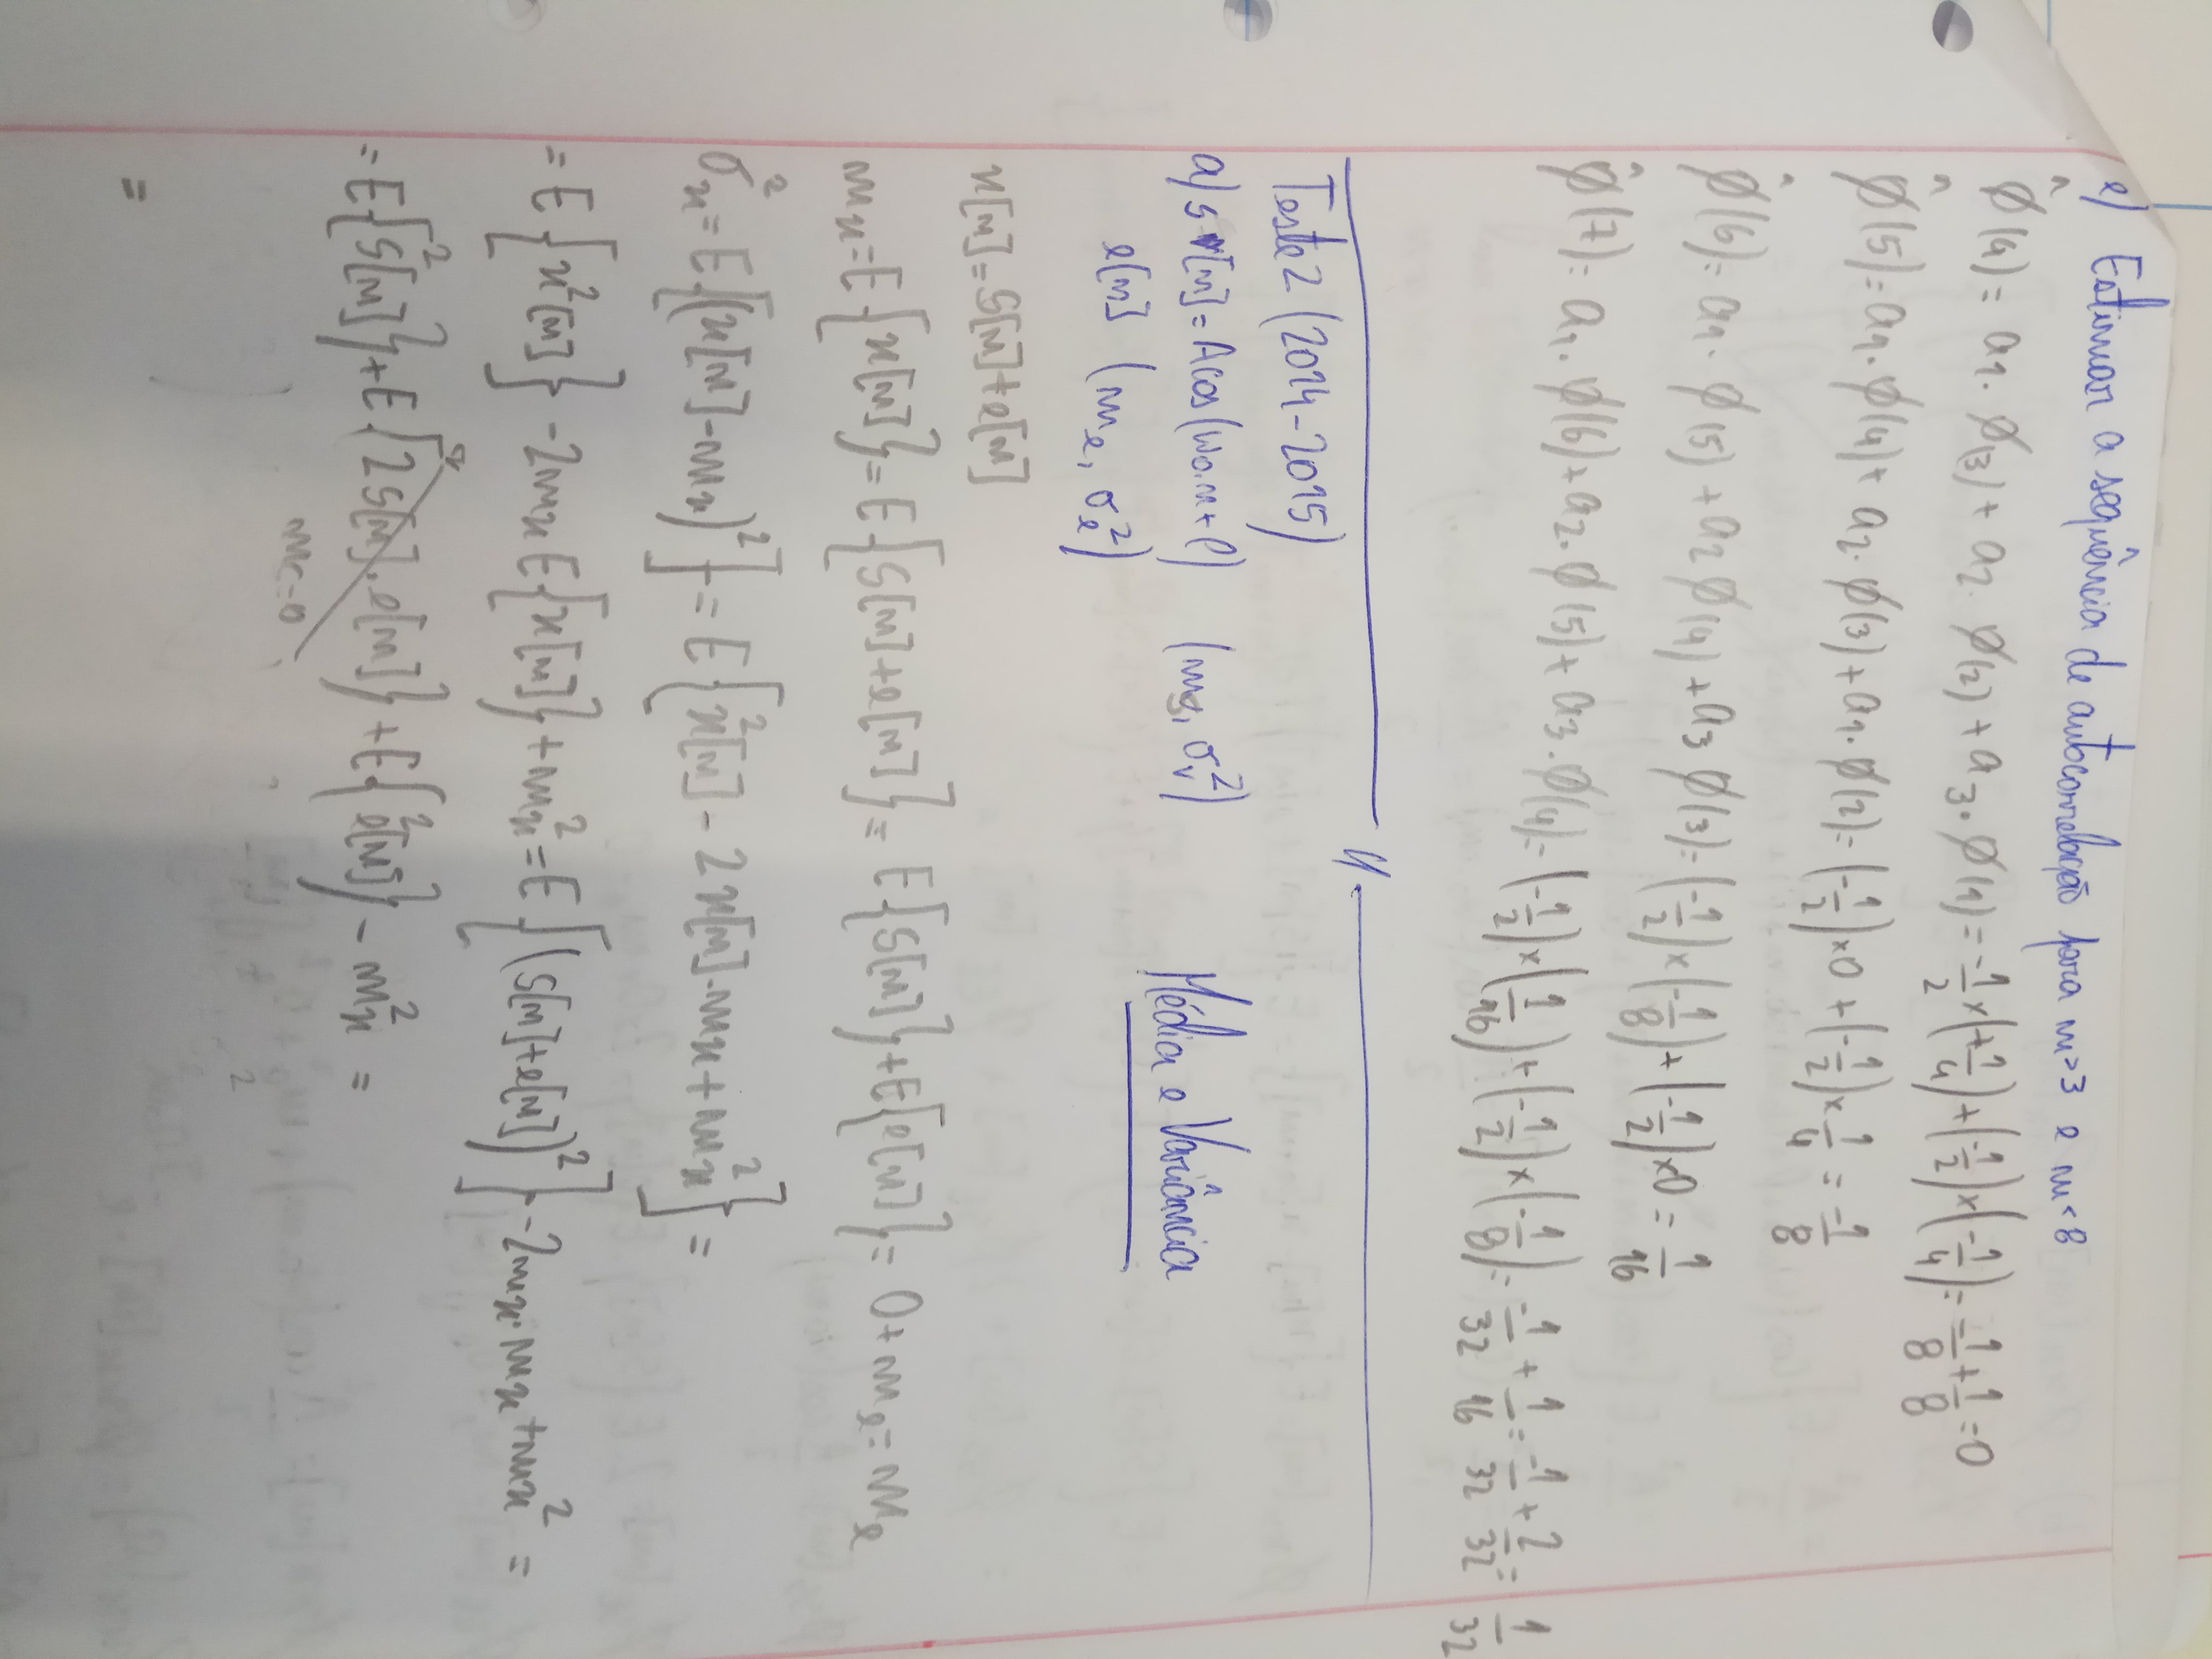 e) Estimar a sequência de autocorrelação para m>3 e m<8
ϕ̂(4) = a1. ϕ(3) + a2. ϕ(2) + a3. ϕ(1) = -1/2 × (+1/4) + (-1/2) × (-1/4) = -1/8 + 1/8 = 0
ϕ̂(5) = a1. ϕ(4) + a2. ϕ(3) + a1. ϕ(2) = (-1/2) × 0 + (-1/2) × 1/4 = -1/8
ϕ̂(6) = a1. ϕ(5) + a2 ϕ(4) + a3 ϕ(3) = (-1/2) × (-1/8) + (-1/2) × 0 = 1/16
ϕ̂(7) = a1. ϕ(6) + a2. ϕ(5) + a3. ϕ(4) = (-1/2) × (1/16) + (-1/2) × (-1/8) = -1/32 + 1/16 = -1/32 + 2/32 = 1/32
Teste 2 (2014-2015)
a) s [n] = A cos(wo.n+φ) (ms, σv²) Média e Variância
e[n] (me, σe²)
x[n] = S[n] + e[n]
mx = E{x[n]} = E{S[n] + e[n]} = E{S[n]} + E{e[n]} = 0 + me = me
σx² = E{(x[n] - mx)²} = E{x²[n] - 2x[n].mx + mx²} =
= E{x²[n]} - 2mx E{x[n]} + mx² = E{(S[n]+e[n])²} - 2mx.mx + mx² =
= E{S²[n]} + E{2S[n].e[n]} + E{e²[n]} - mx² =
=